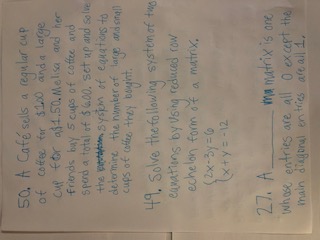 50. A Café sells a regular cup
of coffee for $1.20 and a large
cup for $1.50. Melisa and her
friends buy 5 cups of coffee and
spend a total of $6.00. Set up and solve
the system of equations to
determine the number of large and small
cups of coffee they bought.
49. Solve the following system of two
equations by using reduced row
echelon form of a matrix.
2x-3y=6
x+y=-12
27. A ______ matrix is one
whose entries are all 0 except the
main diagonal entries are all 1.